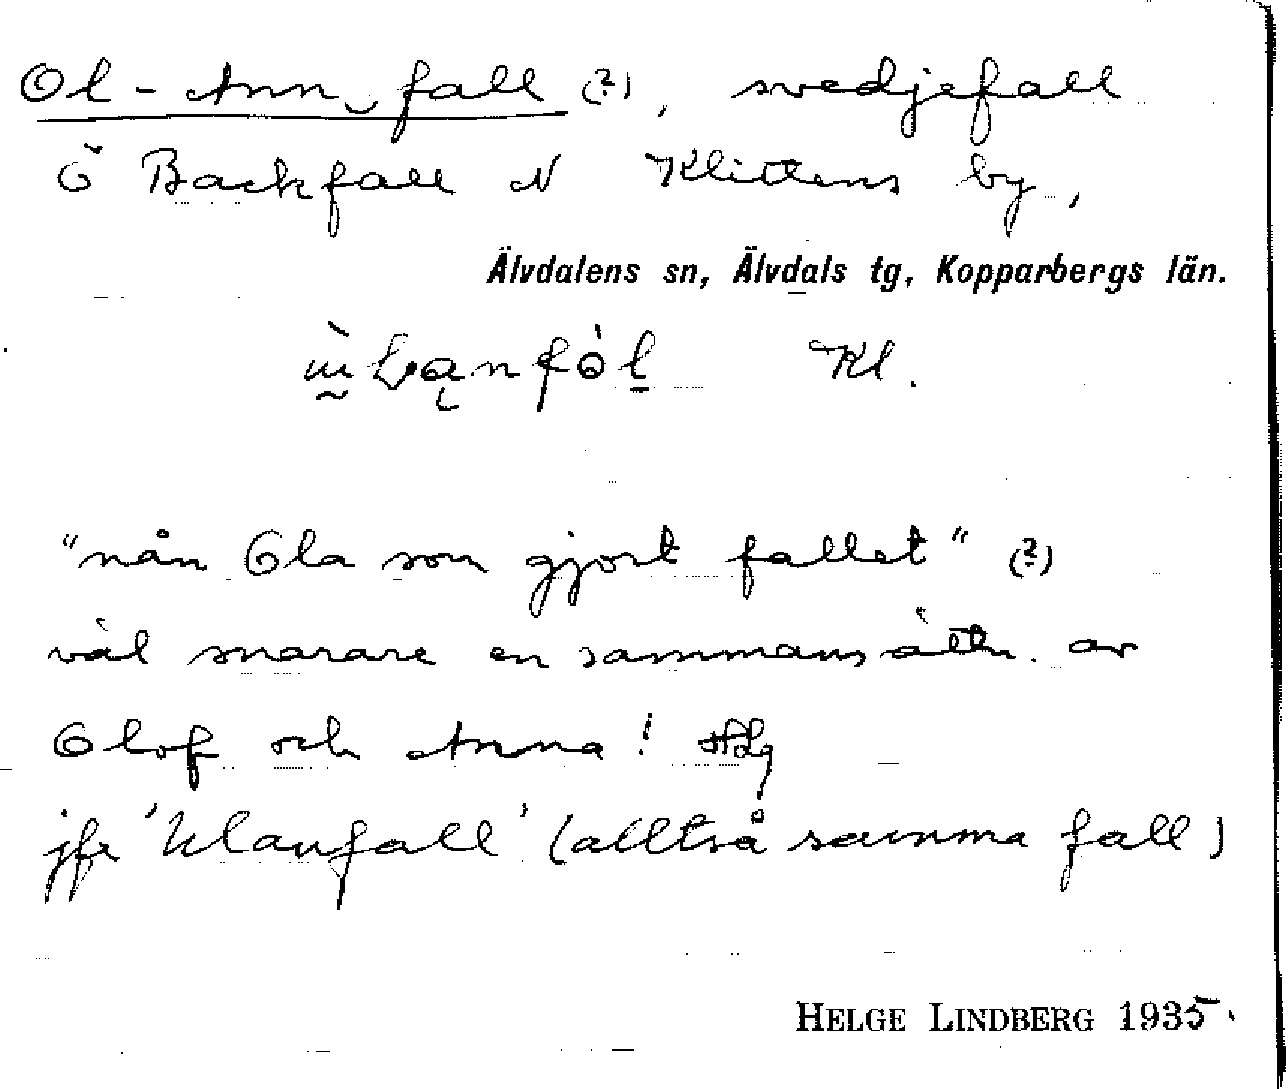 Ol-Ann fall (?), svedjefall
Ö Backfall N Klittens by,
Älvdalens sn, Älvdals tg, Kopparbergs län.
Kl.
"nån Ola som gjort fallet" (?)
väl snarare en sammansättn. av
Olof och Anna! HLg
jfr 'Ulanfall' (alltså samma fall)
HELGE LINDBERG 1935.